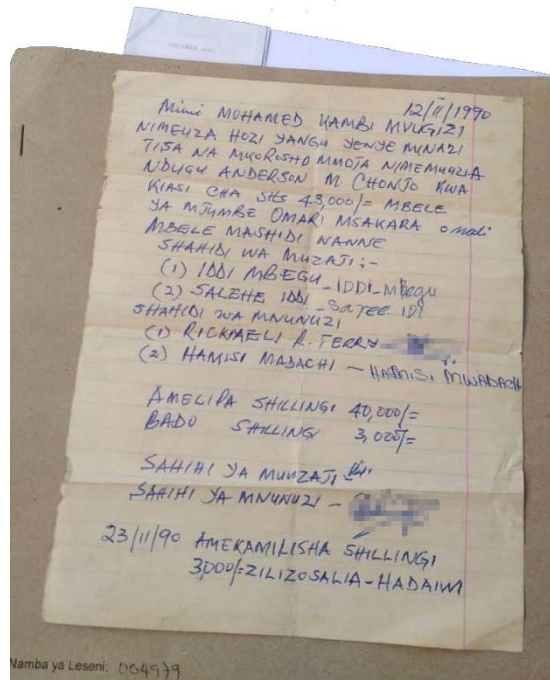 12/11/1990
Mimi MOHAMED KAMBI MVUGIZI
NIMEUZA HOZI YANGU YENYE MINAZI
TISA NA MKOROSHO MMOJA NIMEMUUZIA
NDUGU ANDERSON M CHONJO KWA
KIASI CHA SHS 43,000/= MBELE
YA MJUMBE OMARI MSAKARA omali
MBELE MASHIDI WANNE
SHAHIDI WA MUZAJI:-
(1) IDDI MBEGU - IDDI-MBegu
(2) SALEHE IDDI -
SHAHIDI WA MNUNUZI
(1) RICKIAELI R. TERRY -
(2) HAMISI MADACHI - HAMISI MWADACHI
AMELIPA SHILLINGI 40,000/=
BADO SHILLINGI 3,000/=
SAHIHI YA MUUZAJI -
SAHIHI YA MNUNUZI -
23/11/90 AMEKAMILISHA SHILLINGI
3,000/= ZILIZOSALIA - HADAIWI
Namba ya Leseni: 064979